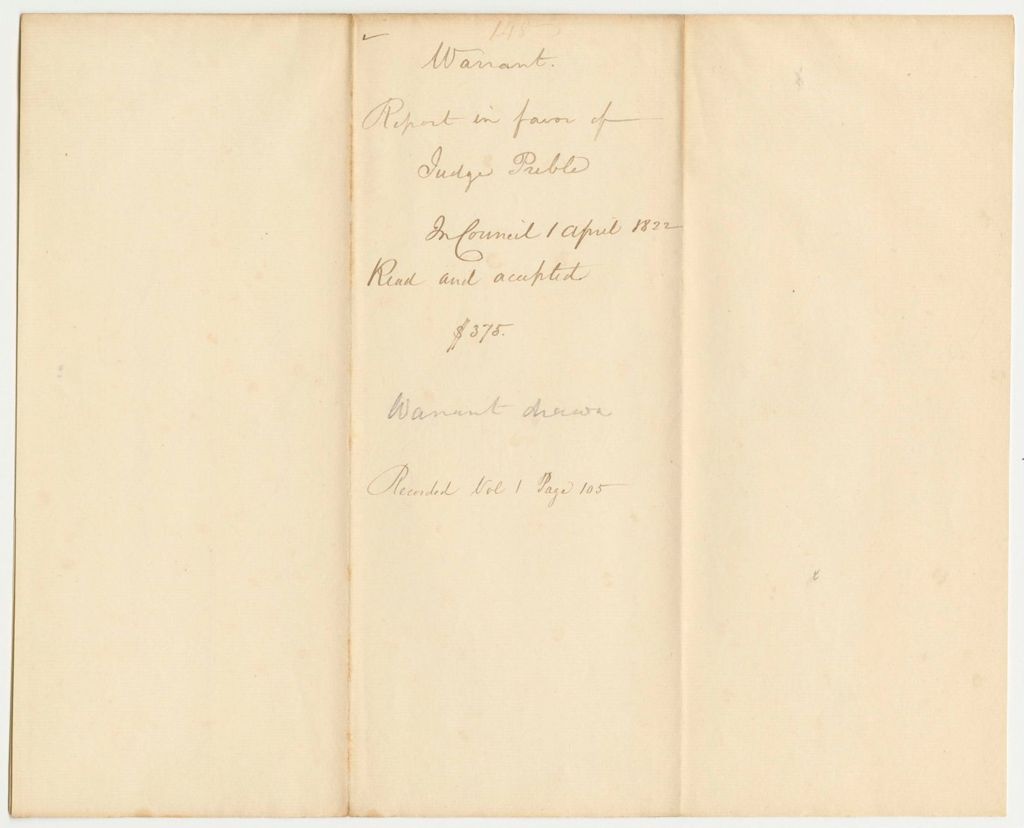 145
Warrant.
Report in favor of
Judge Preble
In Council 1 April 1822
Read and accepted
$375.
Warrant drawn
Recorded Vol 1 Page 105